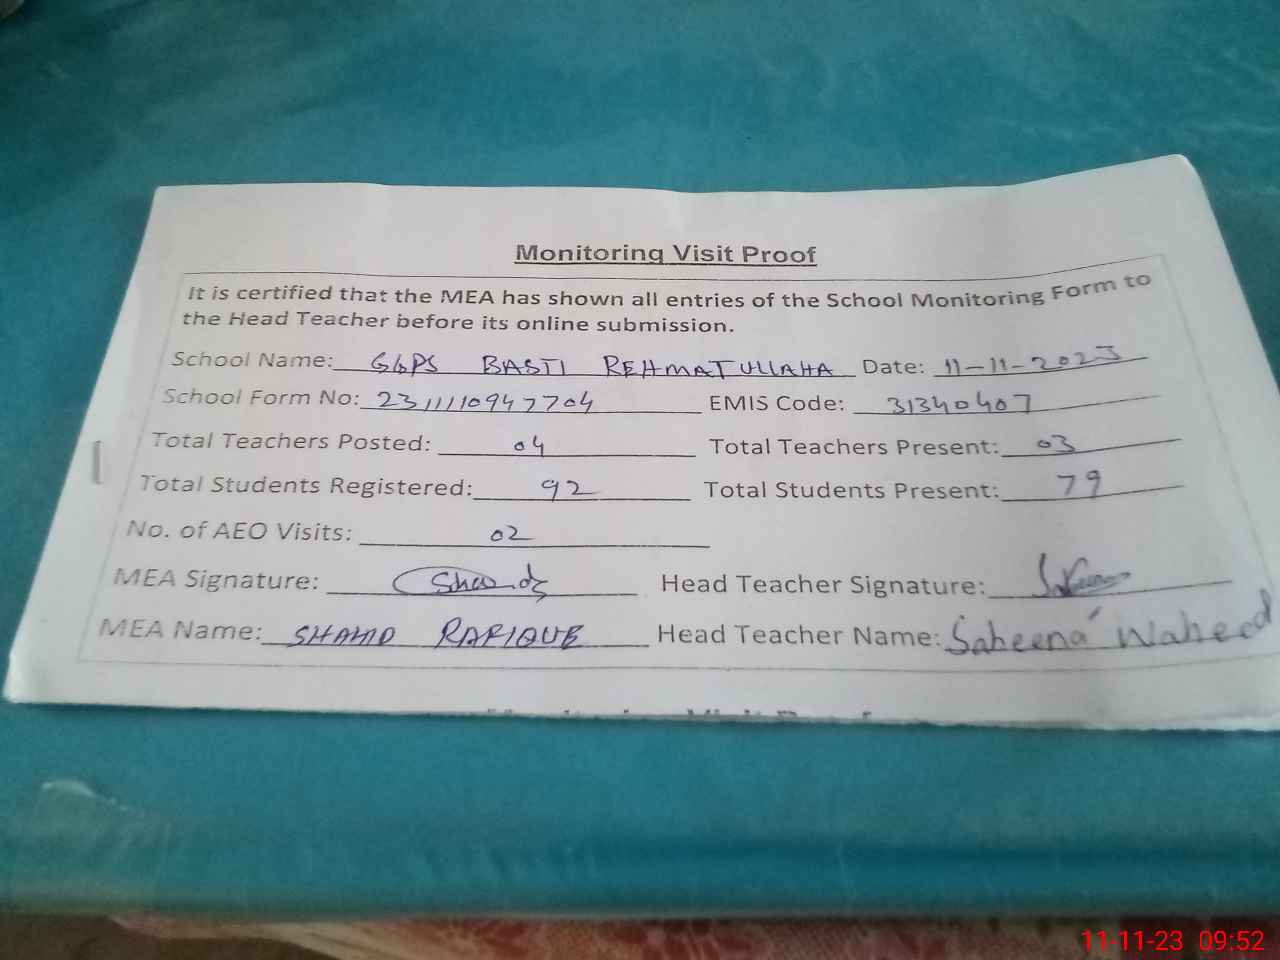 Monitoring Visit Proof
It is certified that the MEA has shown all entries of the School Monitoring Form to
the Head Teacher before its online submission.
School Name: GGPS BASTI REHMATULLAHA Date: 11-11-2023
School Form No: 23111110947704 EMIS Code: 31340407
Total Teachers Posted: 04 Total Teachers Present: 03
Total Students Registered: 92 Total Students Present: 79
No. of AEO Visits: 02
MEA Signature: Head Teacher Signature:
MEA Name: SHAHID RAFIQUE Head Teacher Name: Saheena Waheed
11-11-23 09:52